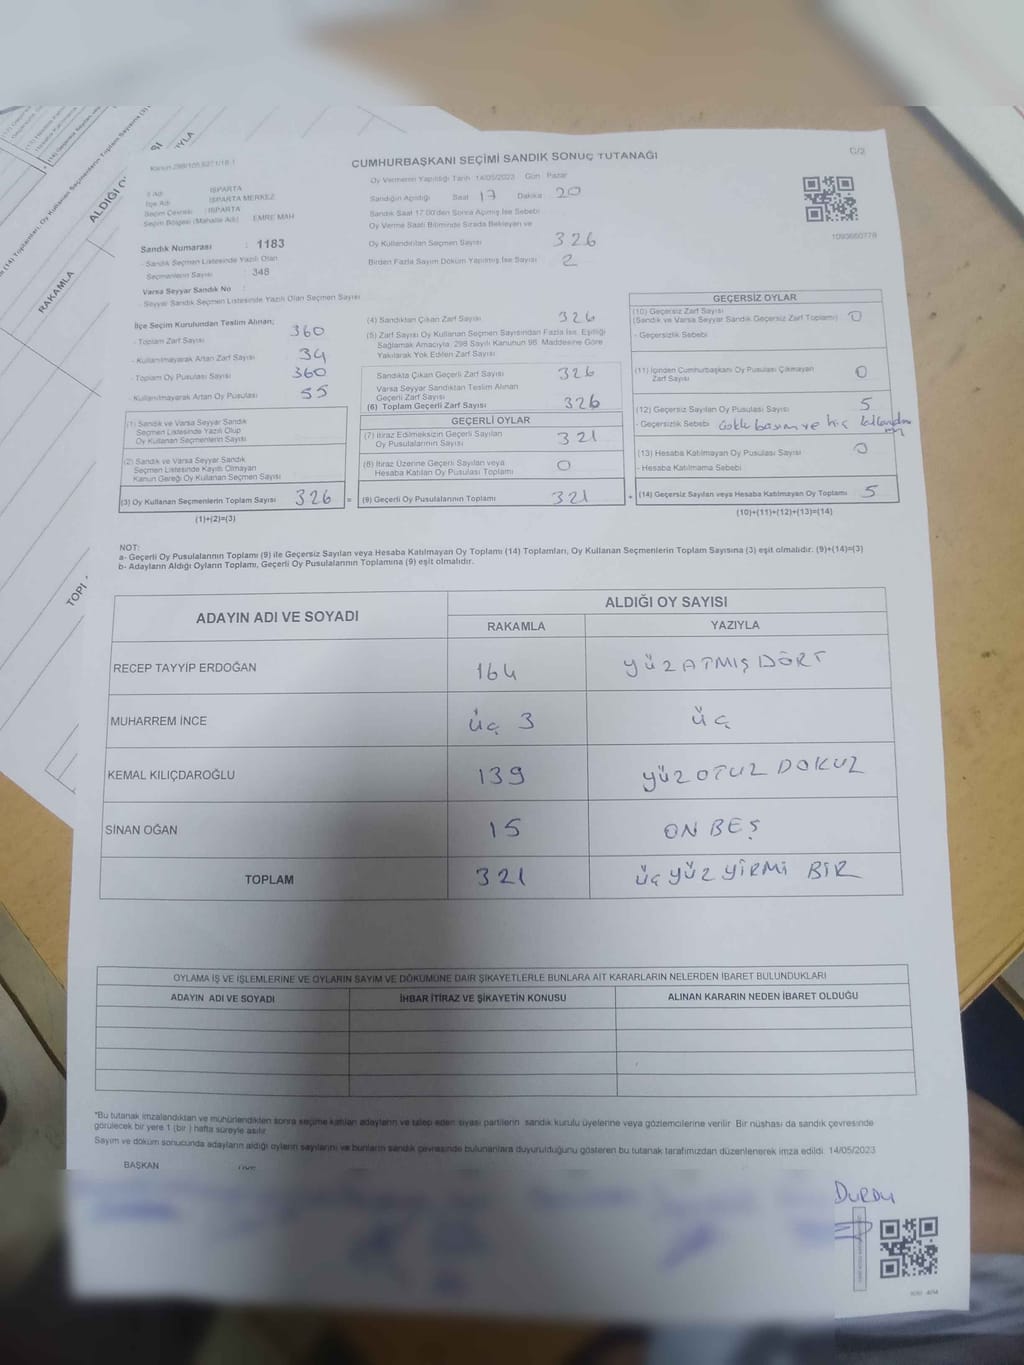 CUMHURBAŞKANI SEÇİMİ SANDIK SONUÇ TUTANAĞI
C/2
Oy Vermenin Yapıldığı Tarih 14/05/2023 Gün Pazar
İl Adı ISPARTA
İlçe Adı ISPARTA MERKEZ
Seçim Çevresi : ISPARTA
Seçim Bölgesi (Mahalle Adı) EMRE MAH
Sandık Numarası : 1183
Sandık Seçmen Listesinde Yazılı Olan
Seçmenlerin Sayısı : 348
Varsa Seyyar Sandık No :
- Seyyar Sandık Seçmen Listesinde Yazılı Olan Seçmen Sayısı
Sandığın Açıldığı Saat 17 Dakika 20
Sandık Saat 17.00'den Sonra Açılmış İse Sebebi
Oy Verme Saati Bitiminde Sırada Bekleyen ve
Oy Kullandırılan Seçmen Sayısı 326
Birden Fazla Sayım Döküm Yapılmış İse Sayısı 2
1093660778
İlçe Seçim Kurulundan Teslim Alınan;
- Toplam Zarf Sayısı 360
- Kullanılmayarak Artan Zarf Sayısı 34
- Toplam Oy Pusulası Sayısı 360
- Kullanılmayarak Artan Oy Pusulası 55
(1) Sandık ve Varsa Seyyar Sandık
Seçmen Listesinde Yazılı Olup
Oy Kullanan Seçmenlerin Sayısı
(2) Sandık ve Varsa Seyyar Sandık
Seçmen Listesinde Kayıtlı Olmayan
Kanun Gereği Oy Kullanan Seçmen Sayısı
(3) Oy Kullanan Seçmenlerin Toplam Sayısı 326 =
(1)+(2)=(3)
(4) Sandıktan Çıkan Zarf Sayısı 326
(5) Zarf Sayısı Oy Kullanan Seçmen Sayısından Fazla İse, Eşitliği
Sağlamak Amacıyla, 298 Sayılı Kanunun 98. Maddesine Göre
Yakılarak Yok Edilen Zarf Sayısı
Sandıkta Çıkan Geçerli Zarf Sayısı 326
Varsa Seyyar Sandıktan Teslim Alınan
Geçerli Zarf Sayısı
(6) Toplam Geçerli Zarf Sayısı 326
GEÇERLİ OYLAR
(7) İtiraz Edilmeksizin Geçerli Sayılan
Oy Pusulalarının Sayısı 321
(8) İtiraz Üzerine Geçerli Sayılan veya
Hesaba Katılan Oy Pusulası Toplamı 0
(9) Geçerli Oy Pusulalarının Toplamı 321 +
GEÇERSİZ OYLAR
(10) Geçersiz Zarf Sayısı
(Sandık ve Varsa Seyyar Sandık Geçersiz Zarf Toplamı) 0
- Geçersizlik Sebebi
(11) İçinden Cumhurbaşkanı Oy Pusulası Çıkmayan
Zarf Sayısı 0
(12) Geçersiz Sayılan Oy Pusulası Sayısı 5
- Geçersizlik Sebebi Çoklu basım ve hiç
(13) Hesaba Katılmayan Oy Pusulası Sayısı 0
- Hesaba Katılmama Sebebi
(14) Geçersiz Sayılan veya Hesaba Katılmayan Oy Toplamı 5
(10)+(11)+(12)+(13)=(14)
NOT:
a- Geçerli Oy Pusulalarının Toplamı (9) ile Geçersiz Sayılan veya Hesaba Katılmayan Oy Toplamı (14) Toplamları, Oy Kullanan Seçmenlerin Toplam Sayısına (3) eşit olmalıdır: (9)+(14)=(3)
b- Adayların Aldığı Oyların Toplamı, Geçerli Oy Pusulalarının Toplamına (9) eşit olmalıdır.
ADAYIN ADI VE SOYADI ALDIĞI OY SAYISI
RAKAMLA YAZIYLA
RECEP TAYYİP ERDOĞAN 164 YÜZ ATMIŞ DÖRT
MUHARREM İNCE üç 3 üç
KEMAL KILIÇDAROĞLU 139 YÜZ OTUZ DOKUZ
SİNAN OĞAN 15 ON BEŞ
TOPLAM 321 üç YÜZ YİRMİ BİR
OYLAMA İŞ VE İŞLEMLERİNE VE OYLARIN SAYIM VE DÖKÜMÜNE DAİR ŞİKAYETLERLE BUNLARA AİT KARARLARIN NELERDEN İBARET BULUNDUKLARI
ADAYIN ADI VE SOYADI İHBAR İTİRAZ VE ŞİKAYETİN KONUSU ALINAN KARARIN NEDEN İBARET OLDUĞU
*Bu tutanak imzalandıktan ve mühürlendikten sonra seçime katılan adayların ve talep eden siyasi partilerin sandık kurulu üyelerine veya gözlemcilerine verilir. Bir nüshası da sandık çevresinde
görülecek bir yere 1 (bir ) hafta süreyle asılır.
Sayım ve döküm sonucunda adayların aldığı oyların sayılarını ve bunların sandık çevresinde bulunanlara duyurulduğunu gösteren bu tutanak tarafımızdan düzenlenerek imza edildi. 14/05/2023
BAŞKAN
DURDU
RAKAMLA
ALDIĞI O